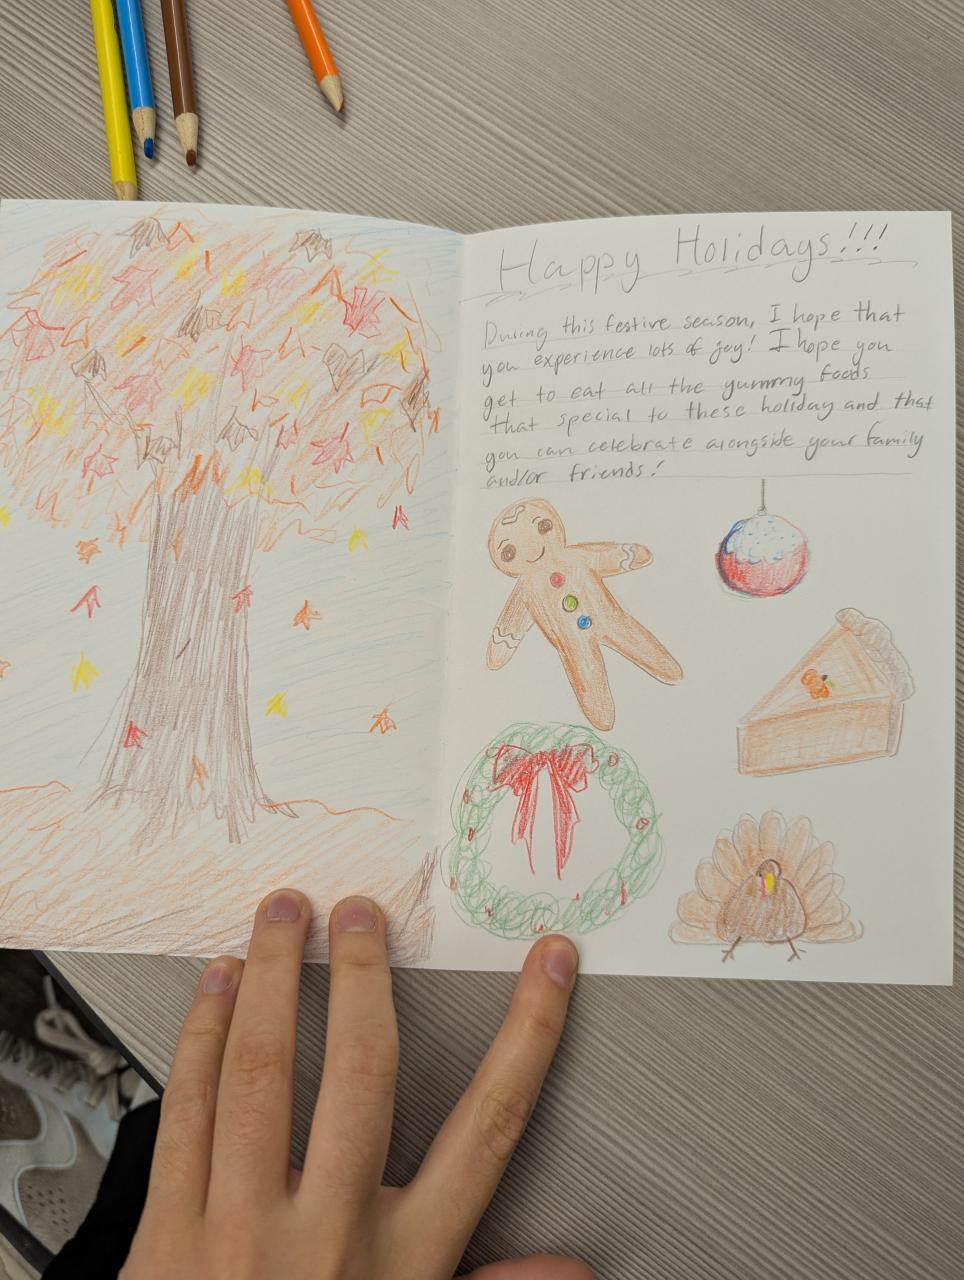 Happy Holidays!!!
During this festive season, I hope that
you experience lots of joy! I hope you
get to eat all the yummy foods
that special to these holiday and that
you can celebrate alongside your family
and/or friends!